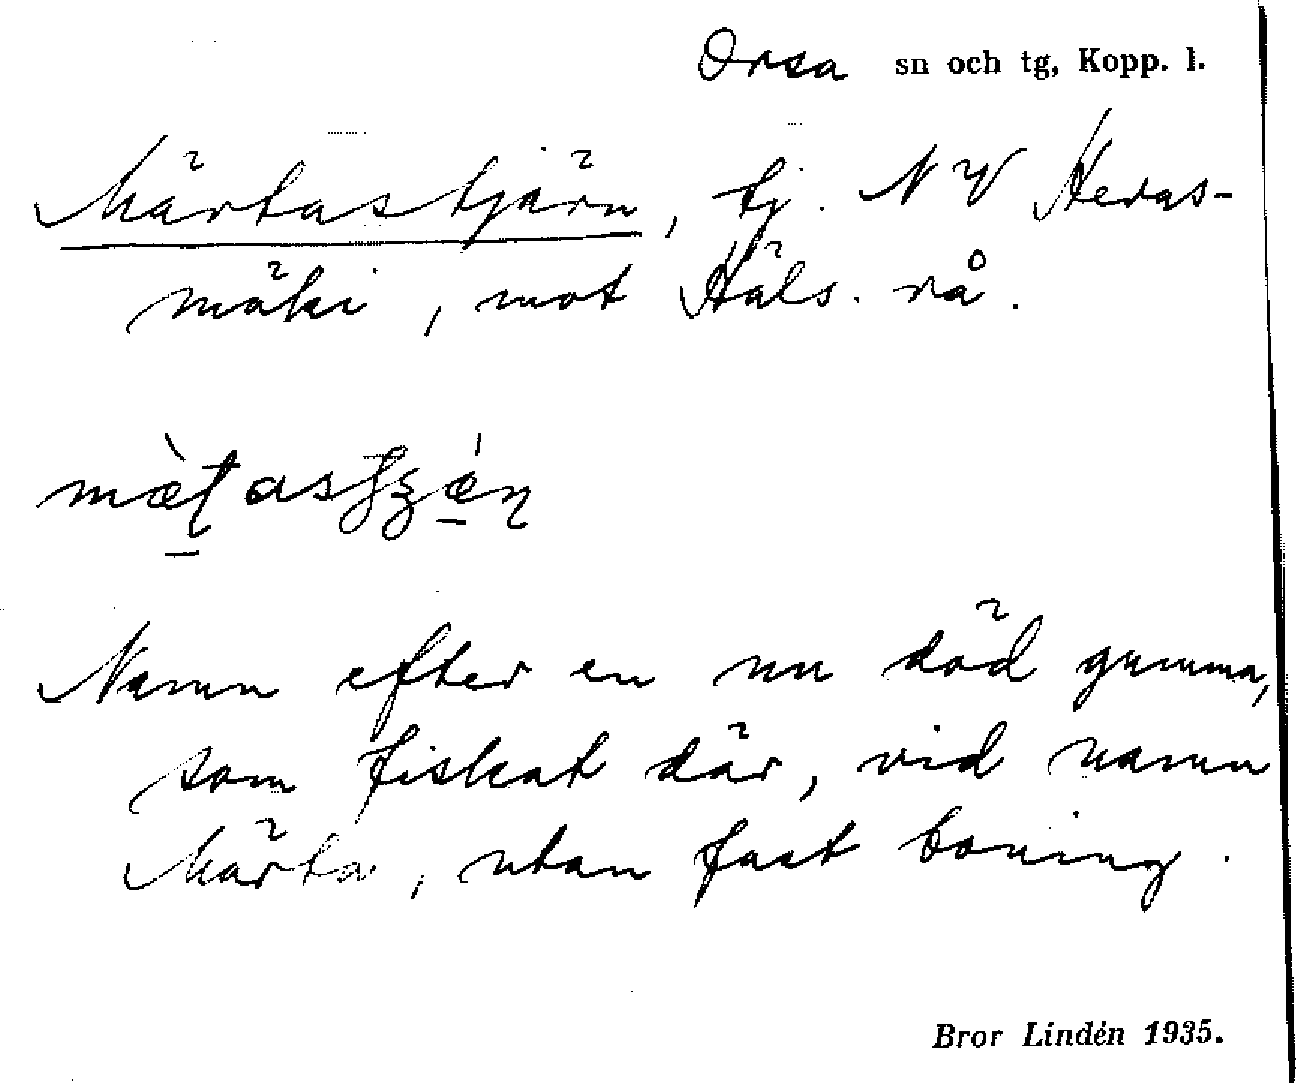 Orsa sn och tg, Kopp. l.
Märtastjärn, tj. NV Heras-
mäki, mot Häls. rå.
mæ̀ṭas
Namn efter en nu död gumma,
som fiskat där, vid namn
Märta, utan fast boning.
Bror Lindén 1935.